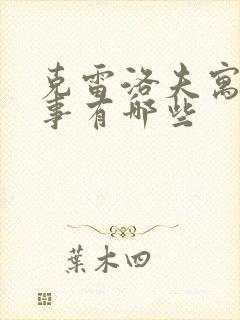 克雷洛夫寓
事有哪些
葉木四